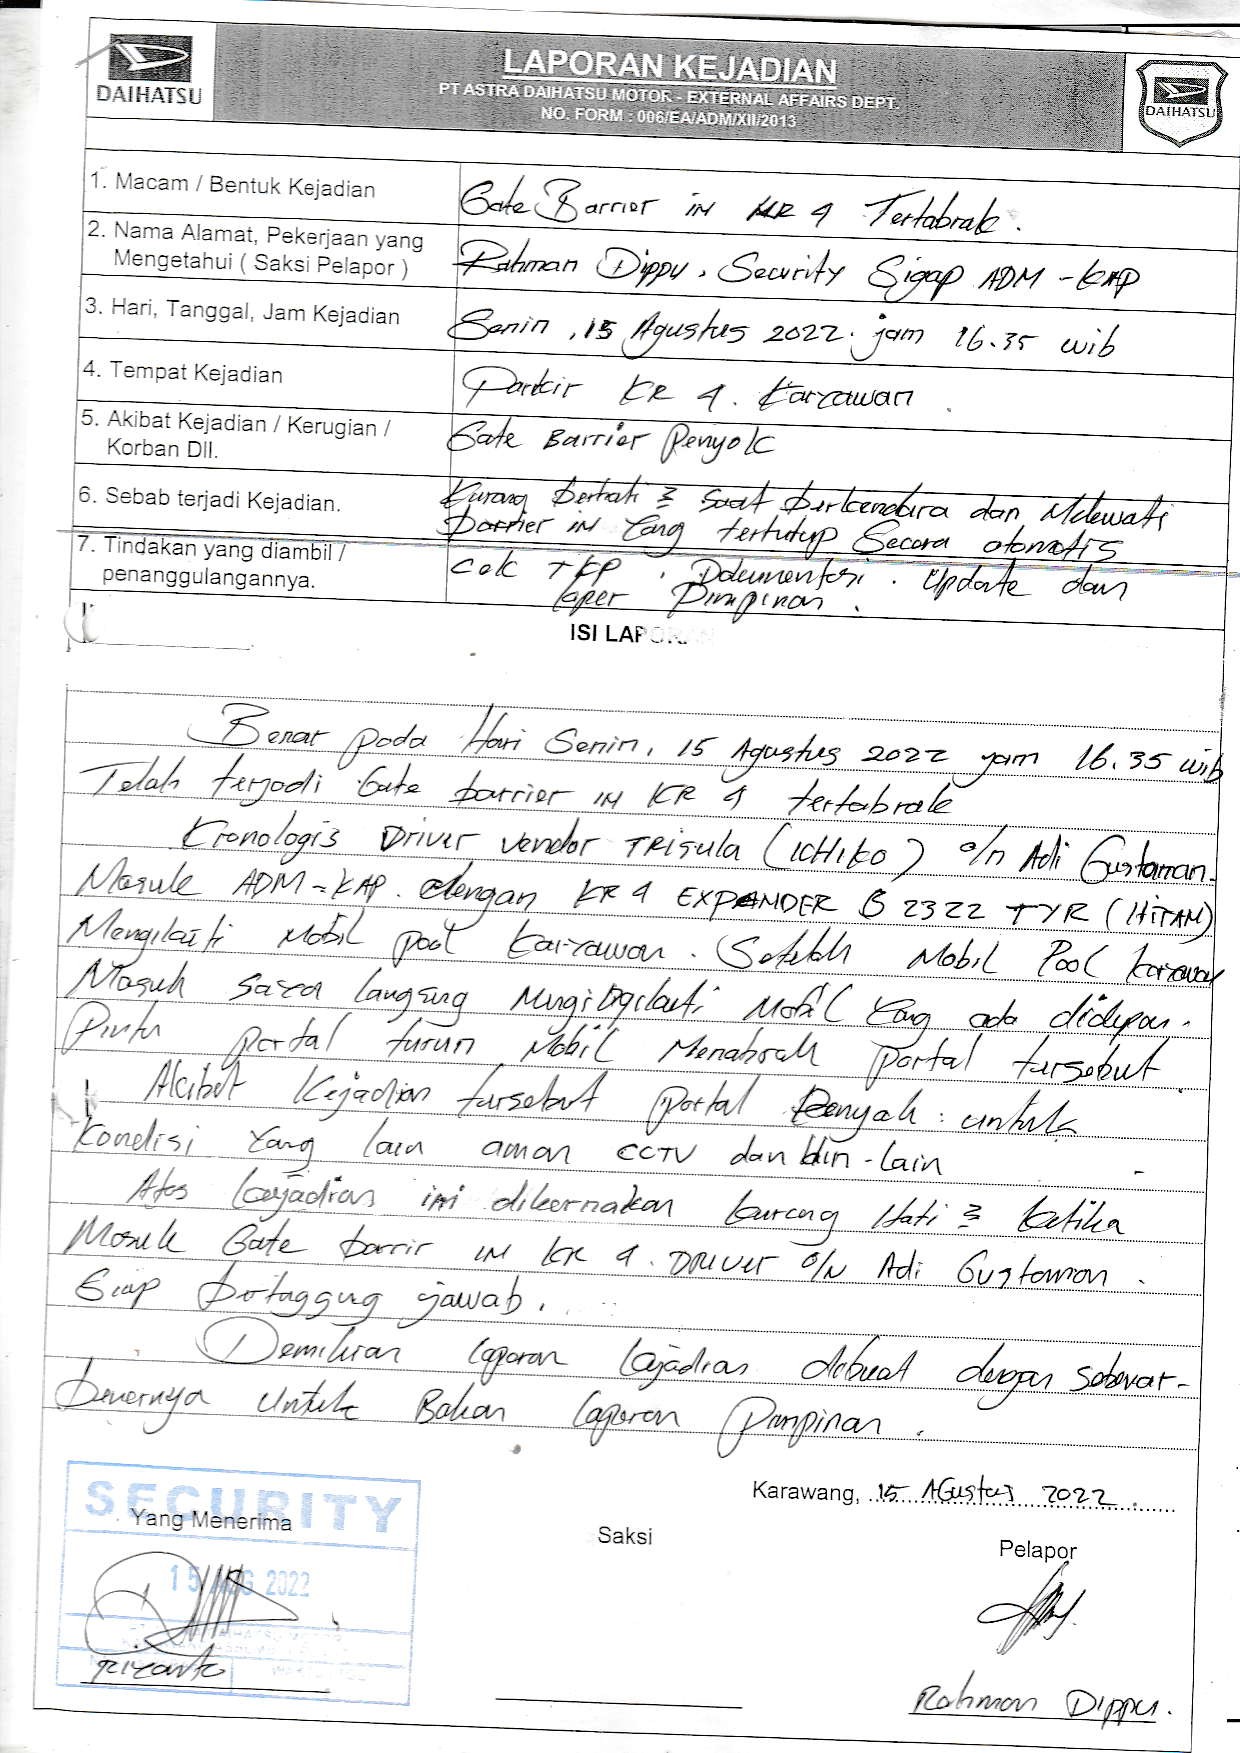 DAIHATSU
LAPORAN KEJADIAN
PT ASTRA DAIHATSU MOTOR - EXTERNAL AFFAIRS DEPT.
NO. FORM : 006/EA/ADM/XII/2013
DAIHATSU
1. Macam / Bentuk Kejadian
Gate Barrier in KR 4 Tertabrak.
2. Nama Alamat, Pekerjaan yang
Mengetahui ( Saksi Pelapor )
Rahman Dippu, Security Sigap ADM - KAP
3. Hari, Tanggal, Jam Kejadian
Senin, 15 Agustus 2022. jam 16.35 wib
4. Tempat Kejadian
Parkir KR 4. Karyawan.
5. Akibat Kejadian / Kerugian /
Korban Dll.
Gate Barrier Penyok
6. Sebab terjadi Kejadian.
Kurang berhati 2 saat berkendara dan Melewati
barrier in yang tertutup Secara otomatis
7. Tindakan yang diambil /
penanggulangannya.
Cek TKP. Dokumentasi. Update dan
laper Pimpinan.
ISI LAPORAN
Benar pada Hari Senin, 15 Agustus 2022 jam 16.35 wib
Telah terjadi Gate barrier IN KR 4 tertabrak
Kronologis Driver Vendor TRISULA (ICHIKO) o/n Adi Gustaman.
Masuk ADM-KAP. dengan KR 4 EXPANDER B 2322 TYR (HITAM)
Mengikuti Mobil pool Karyawan. Setelah Mobil Pool karyawan
Masuk saya langsung Mobil yang ada didepan.
Pintu portal turun Mobil Menabrak portal tersebut.
Akibat Kejadian tersebut portal Penyak. untuk
Kondisi yang lain aman CCTV dan lain-lain -
Atas kejadian ini dikarnakan kurang Hati 2 ketika
Masuk Gate barrir IN KR 4. DRIVER O/N Adi Gustaman.
Siap Bertaggug jawab.
Demikian laporan kejadian dibuat dengan sebenar-
benernya Untuk Bahan laporan Pimpinan.
Karawang, 15 AGustus 2022.
SECURITY
Yang Menerima
Saksi
Pelapor
15 AUG 2022
Riyanto
Rahman Dippu.